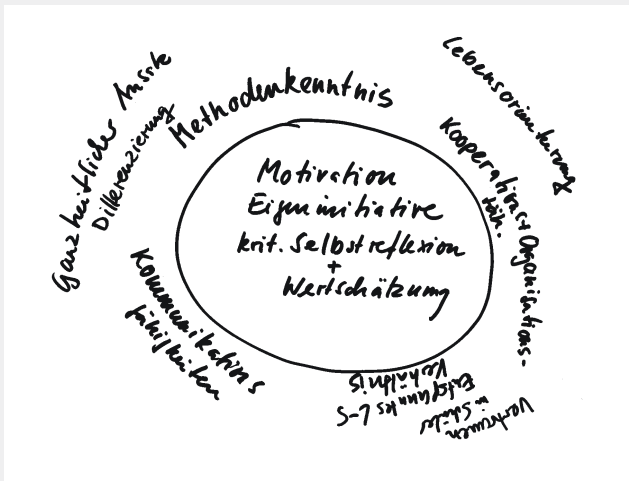 Ganzheitlicher Ansatz
Differenzierung
Methodenkenntnis
Lebensorientierung
Kooperations+Organisations-
fäh.
Motivation
Eigeninitiative
krit. Selbstreflexion
+
Wertschätzung
Kommunikations
fähigkeiten
Entspanntes L-S
Verhältnis
Vertrauen
in Schüler